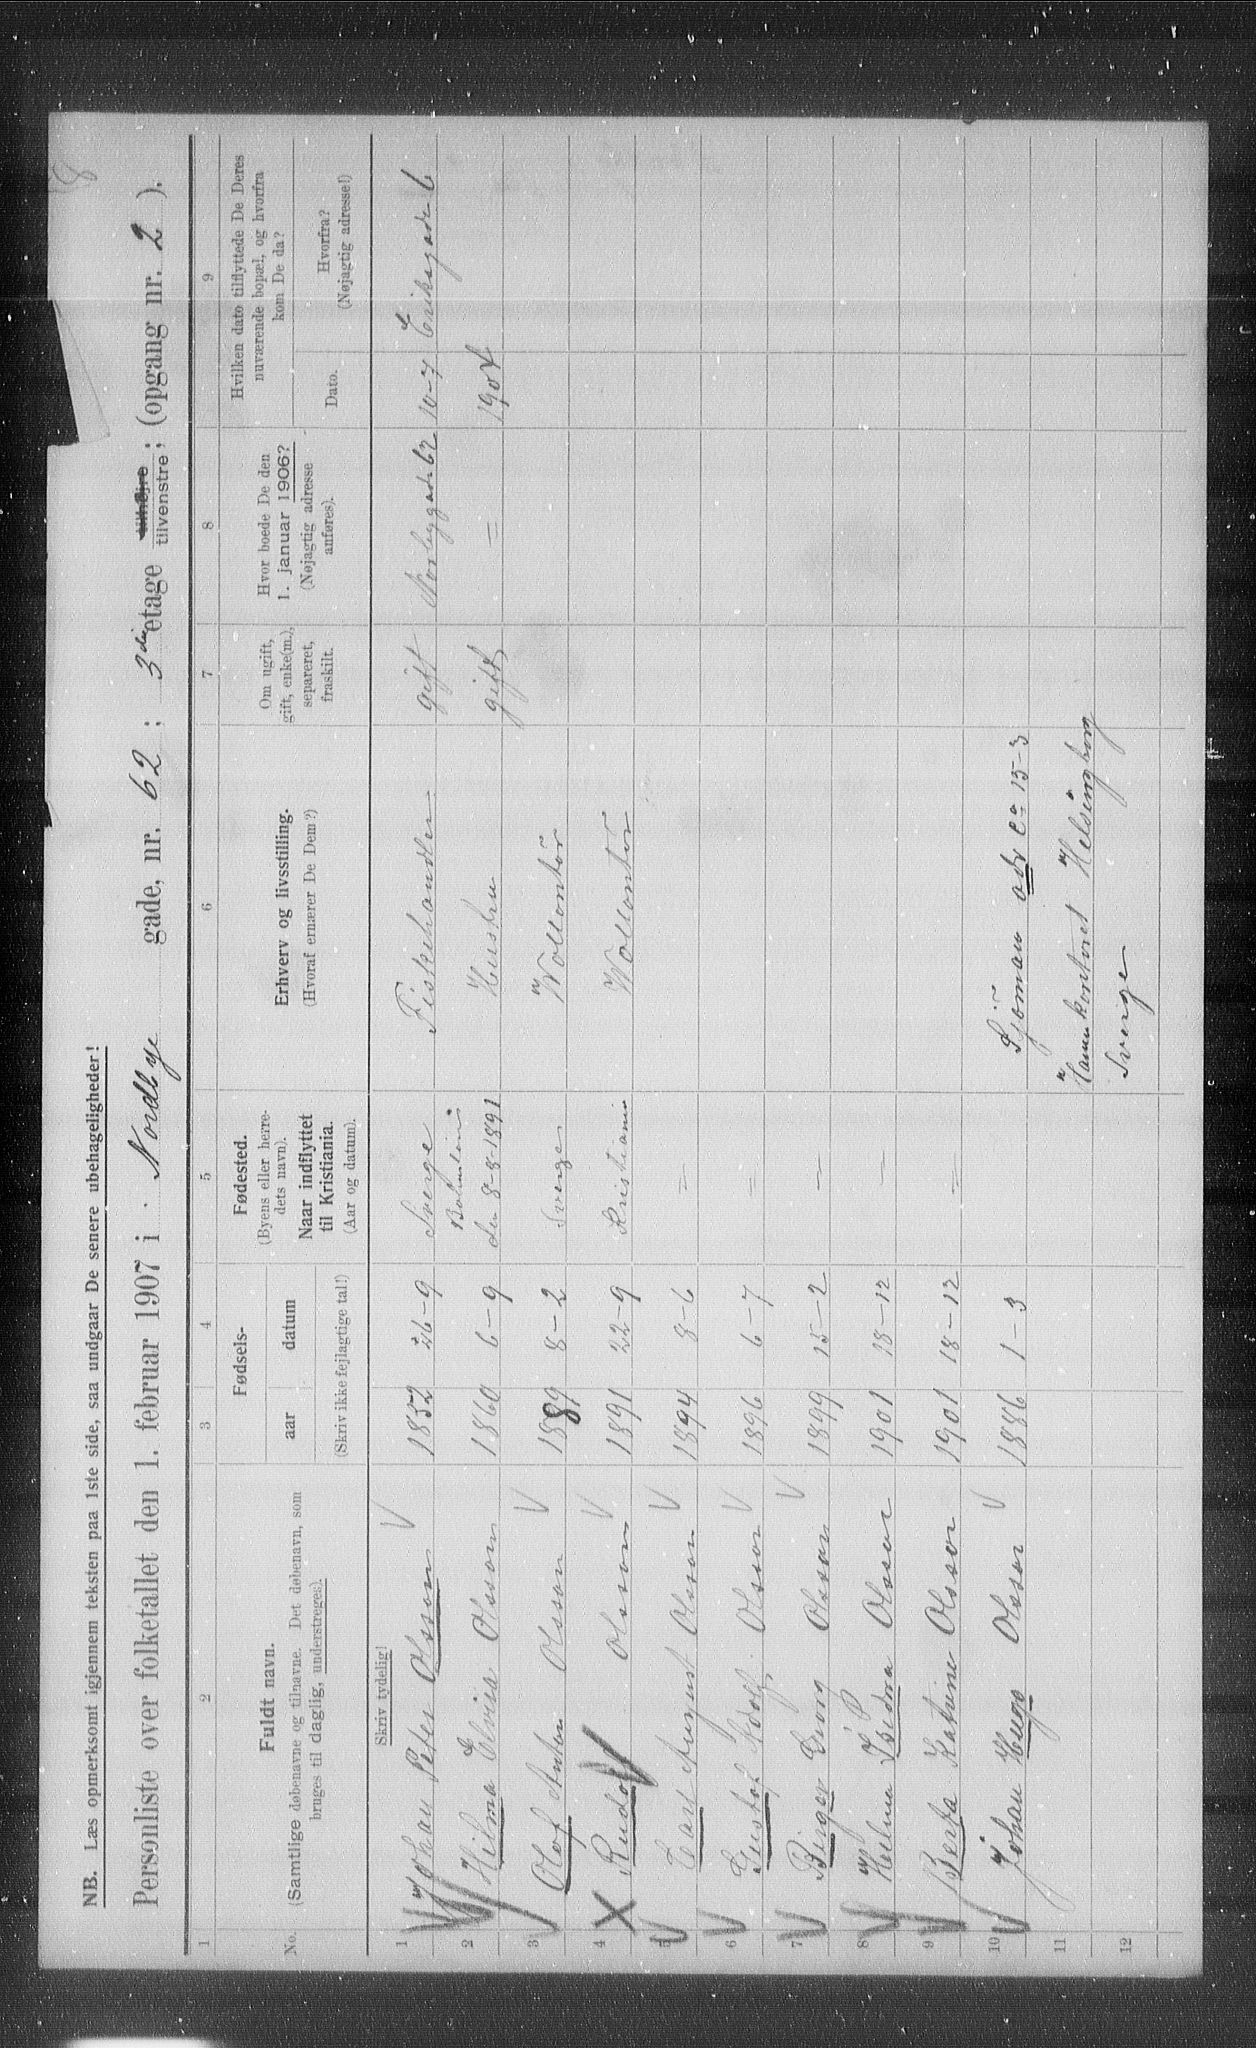 NB. Læs opmerksomt igjennem teksten paa 1ste side, saa undgaar De senere ubehageligheder!
Personliste over folketallet den 1. februar 1907 i Nordbye gade, nr. 62; 3die etage tilhøjre tilvenstre; (opgang nr. 2).
1 2 3 4 5 6 7 8 9
No. Fuldt navn. (Samtlige døbenavne og tilnavne. Det døbenavn, som bruges til daglig, understreges).
Fødsels- aar datum (Skriv ikke fejlagtige tal!)
Fødested. (Byens eller herredets navn). Naar indflyttet til Kristiania. (Aar og datum).
Erhverv og livsstilling. (Hvoraf ernærer De Dem?)
Om ugift, gift, enke(m.), separeret, fraskilt.
Hvor boede De den 1. januar 1906? (Nøjagtig adresse anføres).
Hvilken dato tilflyttede De Deres nuværende bopæl, og hvorfra kom De da?
Dato. Hvorfra? (Nøjagtig adresse!)
Skriv tydelig!
1 Johan Peter Olsson 1852 26-9 Sverge Fiskehandler gift Norbygade 62 10-7 Eriksgade 6
2 Hilma Elvira Olsson 1860 6-9 den 8-8-1891 Hustru gift = 1904
3 Olof Anton Olsson 1889 8-2 Sverge Wollontör
4 Rudolf Olsson 1891 22-9 Kristiania Wollontör
5 Carl August Olsson 1894 8-6 =
6 Gustaf Adolf Olsson 1896 6-7 =
7 Birger Georg Olsson 1899 15-2 =
8 Helma Olsson 1901 18-12 =
9 Berta Katrine Olsson 1901 18-12 =
10 Johan Hugo Olsson 1886 1-3 Sjöman adr 15-3
11 Hamnkontoret Helsingborg
12 Sverige